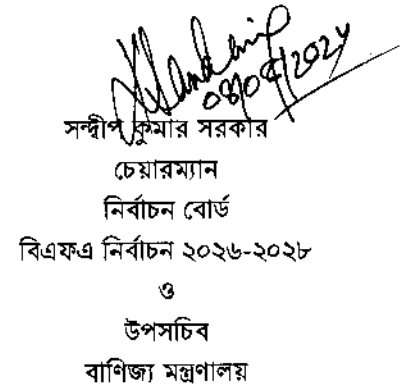 সন্দ্বীপ কুমার সরকার
চেয়ারম্যান
নির্বাচন বোর্ড
বিএফএ নির্বাচন ২০২৬-২০২৮
ও
উপসচিব
বাণিজ্য মন্ত্রণালয়